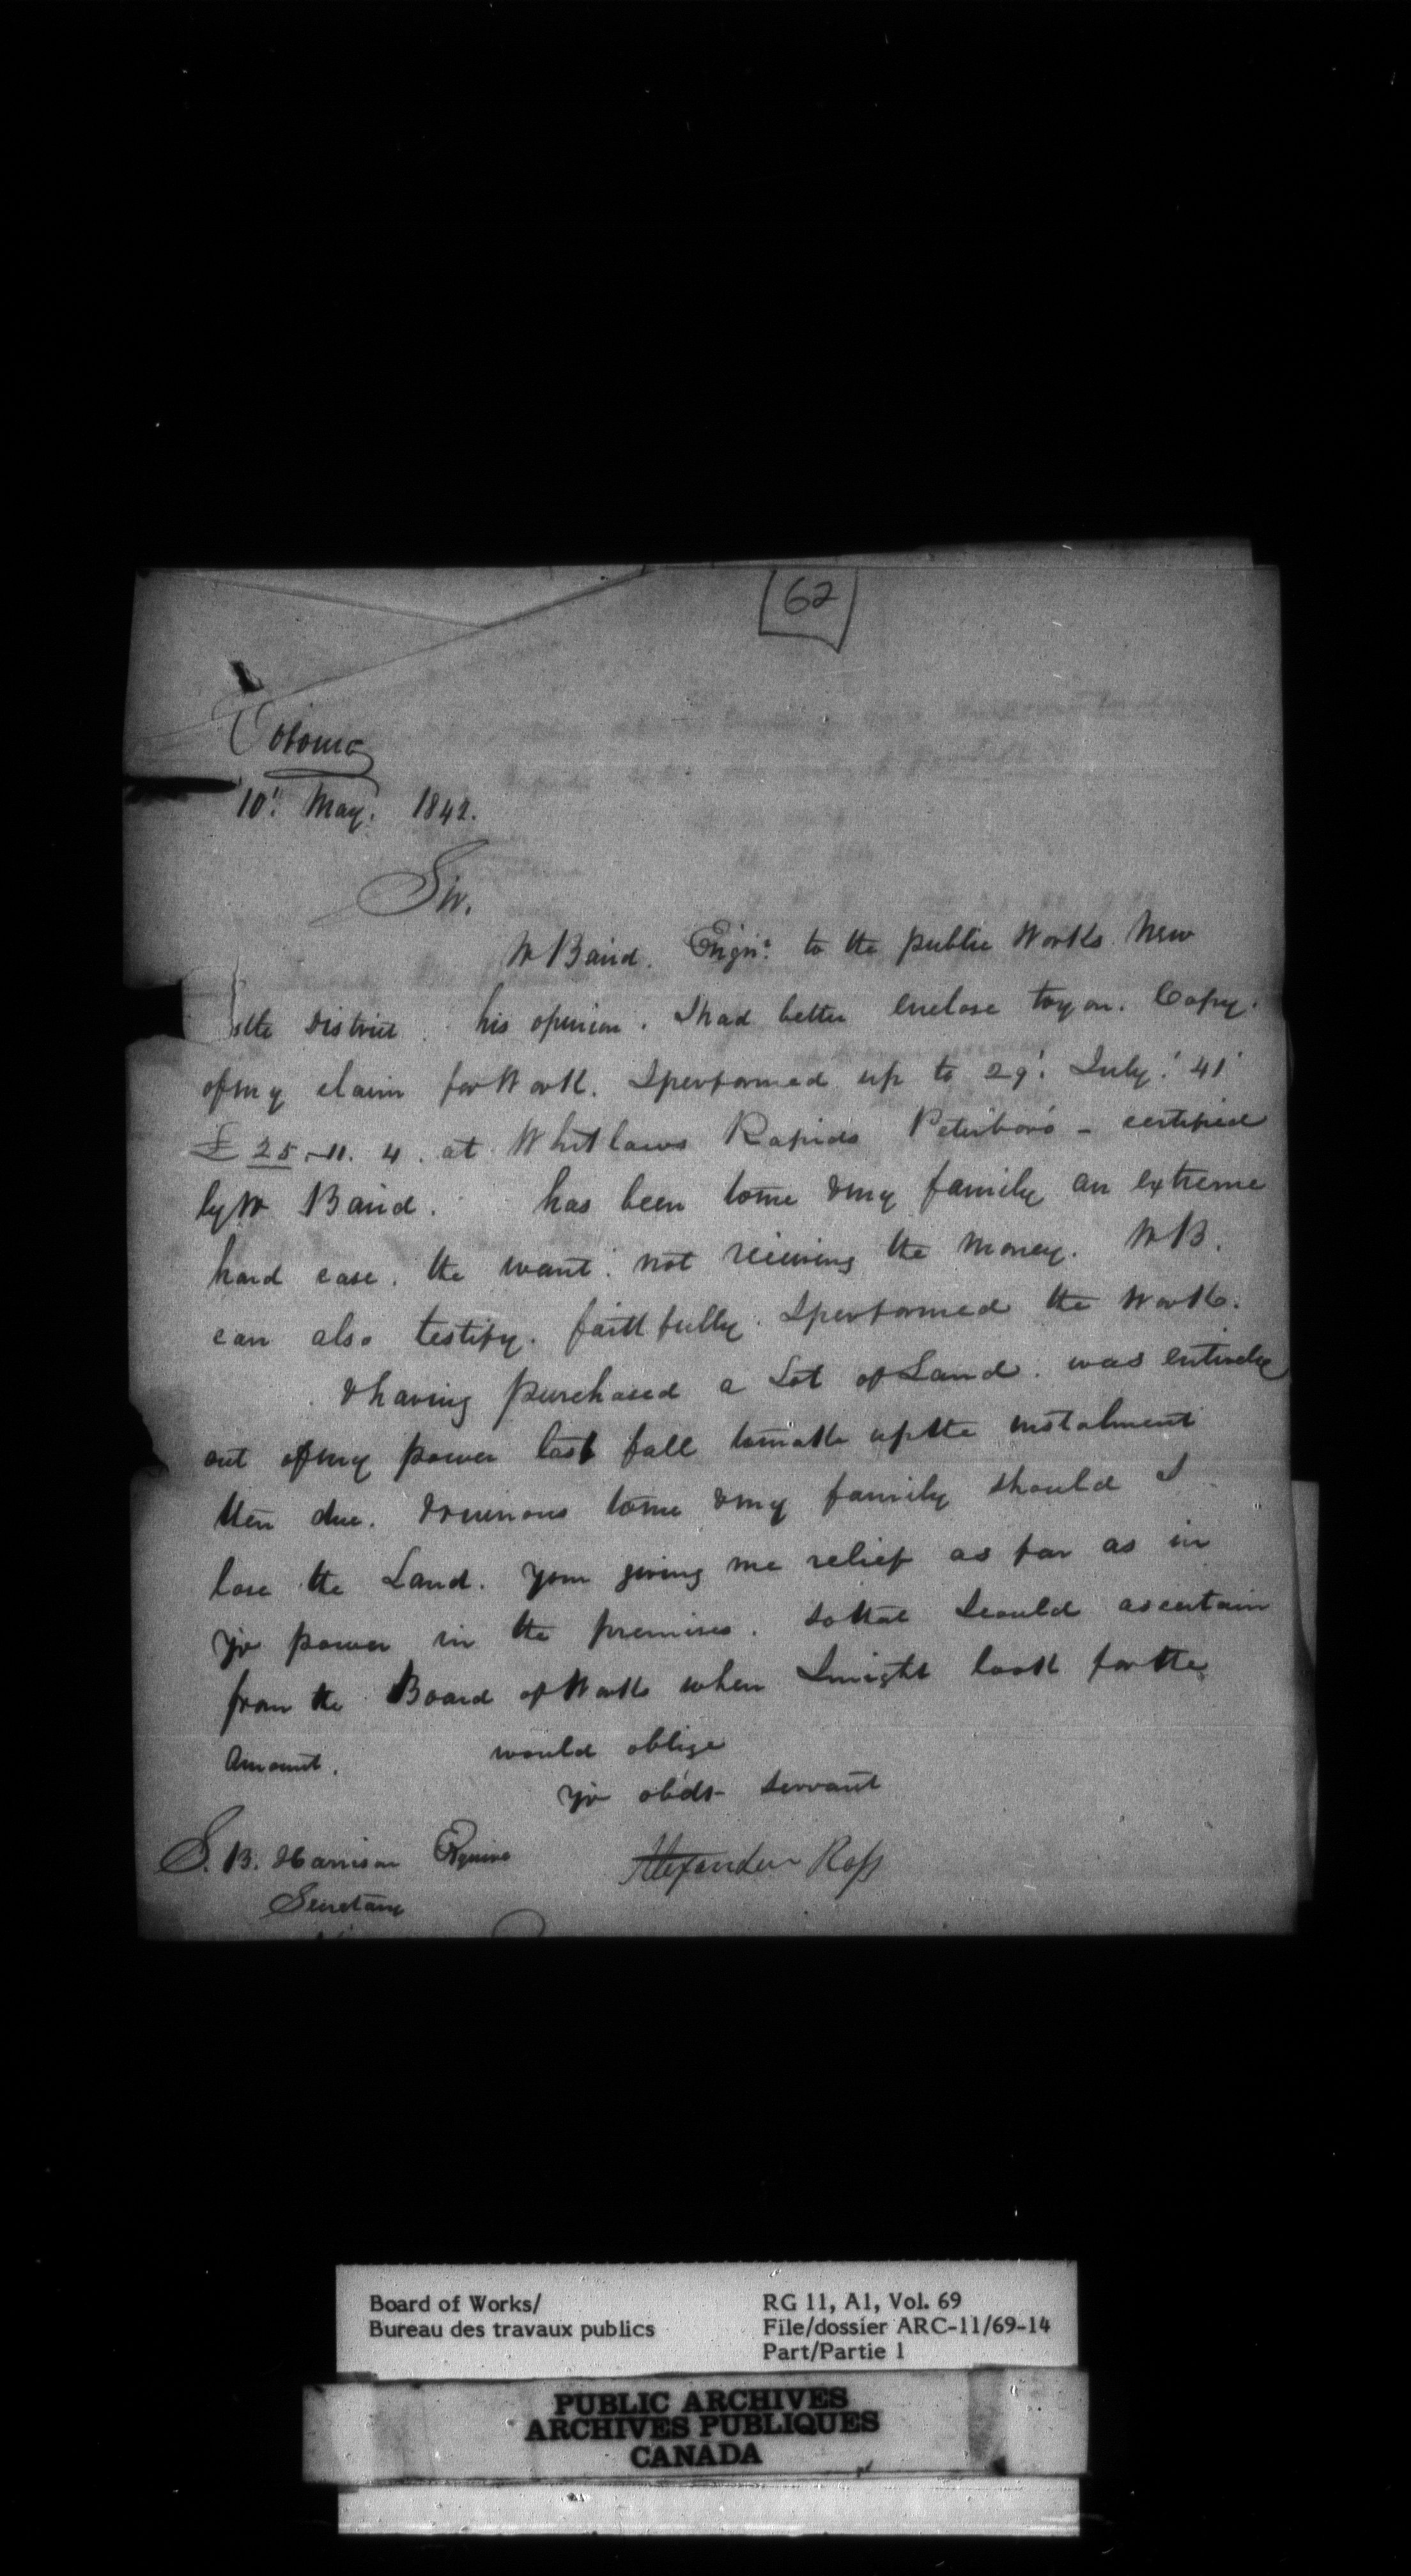 62
Otonio
10th May. 1842.
Sir.
Mr Baird. Engnr. to the public Works New
stle District. his opinion. I had better enclose to you. Copy.
of my claim for Work. I performed up to 29. July. 41
£25-11. 4. at Whitlaws Rapids Peterboro - certified
by Mr Baird. has been to me & my family an extreme
hard case. the want. not receiving the money. Mr B.
can also testify. faithfully. I performed the Work.
& having purchased a Lot of Land. was entirely
out of my power last fall to make up the instalment
then due. & ruinous to me & my family should I
lose the Land. your giving me relief as far as in
yr power in the premises. so that I could ascertain
from the Board of Works when I might look for the
Amount. would oblige
yr obdt servant
S. B. Harrison Esquire Alexander Ross
Secretary
Board of Works/
Bureau des travaux publics
RG 11, A1, Vol. 69
File/dossier ARC-11/69-14
Part/Partie 1
PUBLIC ARCHIVES
ARCHIVES PUBLIQUES
CANADA